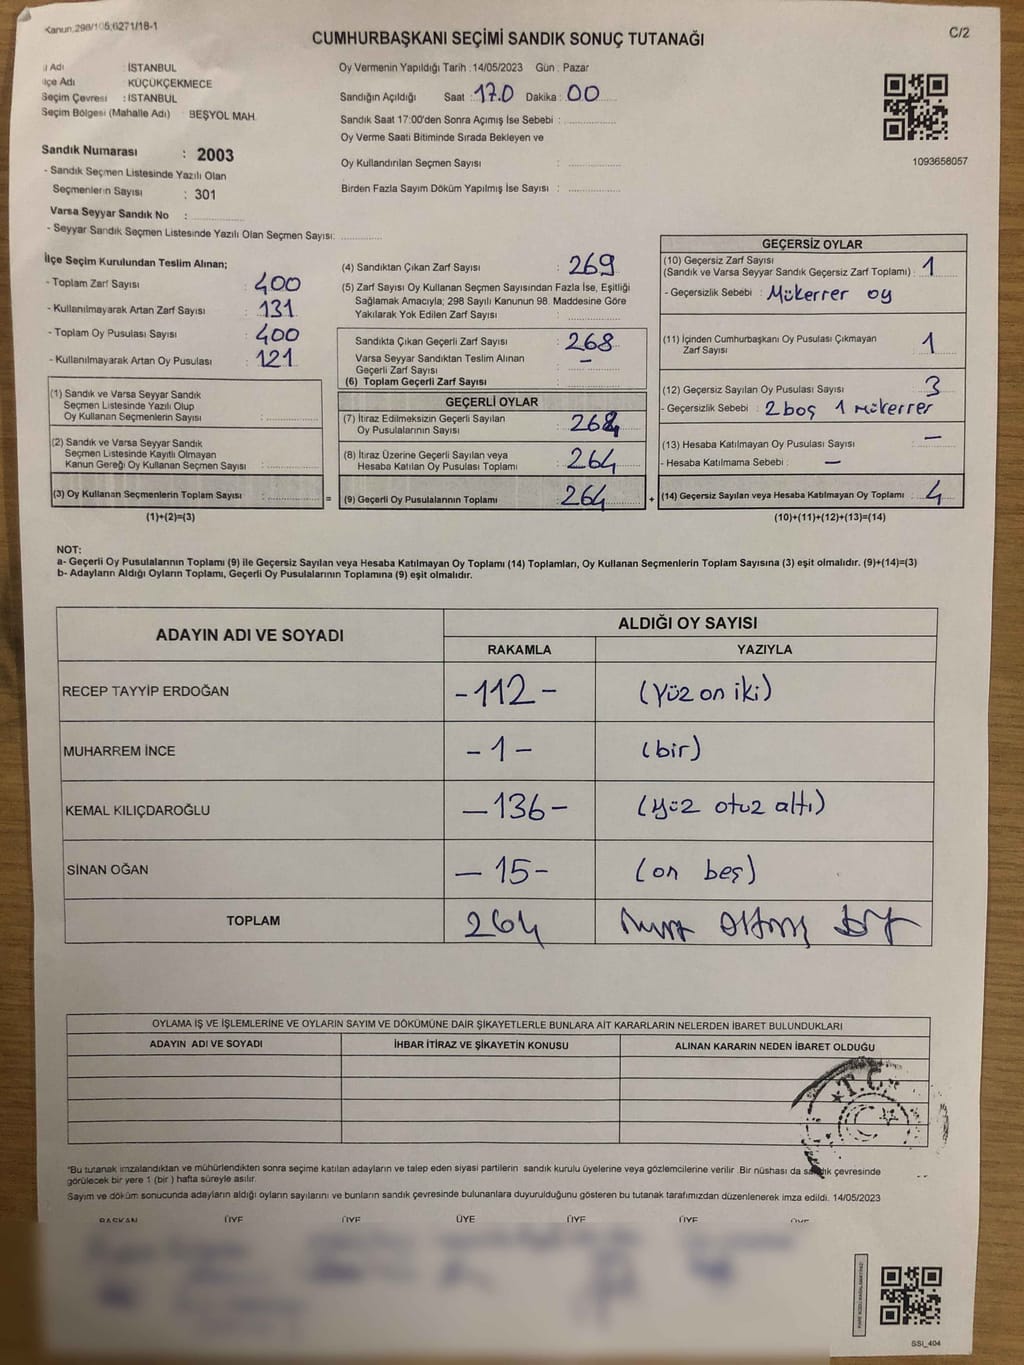 Kanun:298/105,6271/18-1
C/2
CUMHURBAŞKANI SEÇİMİ SANDIK SONUÇ TUTANAĞI
İl Adı : İSTANBUL
İlçe Adı KÜÇÜKÇEKMECE
Seçim Çevresi : İSTANBUL
Seçim Bölgesi (Mahalle Adı) : BEŞYOL MAH.
Sandık Numarası : 2003
- Sandık Seçmen Listesinde Yazılı Olan
Seçmenlerin Sayısı : 301
Varsa Seyyar Sandık No :
- Seyyar Sandık Seçmen Listesinde Yazılı Olan Seçmen Sayısı:
Oy Vermenin Yapıldığı Tarih : 14/05/2023 Gün : Pazar
Sandığın Açıldığı Saat : 17.0 Dakika : 00
Sandık Saat 17:00'den Sonra Açımış İse Sebebi :
Oy Verme Saati Bitiminde Sırada Bekleyen ve
Oy Kullandırılan Seçmen Sayısı :
Birden Fazla Sayım Döküm Yapılmış İse Sayısı :
1093658057
İlçe Seçim Kurulundan Teslim Alınan;
- Toplam Zarf Sayısı : 400
- Kullanılmayarak Artan Zarf Sayısı : 131
- Toplam Oy Pusulası Sayısı : 400
- Kullanılmayarak Artan Oy Pusulası : 121
(1) Sandık ve Varsa Seyyar Sandık
Seçmen Listesinde Yazılı Olup
Oy Kullanan Seçmenlerin Sayısı :
(2) Sandık ve Varsa Seyyar Sandık
Seçmen Listesinde Kayıtlı Olmayan
Kanun Gereği Oy Kullanan Seçmen Sayısı :
(3) Oy Kullanan Seçmenlerin Toplam Sayısı : =
(1)+(2)=(3)
(4) Sandıktan Çıkan Zarf Sayısı : 269
(5) Zarf Sayısı Oy Kullanan Seçmen Sayısından Fazla İse, Eşitliği
Sağlamak Amacıyla; 298 Sayılı Kanunun 98. Maddesine Göre
Yakılarak Yok Edilen Zarf Sayısı :
Sandıkta Çıkan Geçerli Zarf Sayısı : 268
Varsa Seyyar Sandıktan Teslim Alınan
Geçerli Zarf Sayısı : –
(6) Toplam Geçerli Zarf Sayısı :
GEÇERLİ OYLAR
(7) İtiraz Edilmeksizin Geçerli Sayılan
Oy Pusulalarının Sayısı : 264
(8) İtiraz Üzerine Geçerli Sayılan veya
Hesaba Katılan Oy Pusulası Toplamı : 264
(9) Geçerli Oy Pusulalarının Toplamı : 264 +
GEÇERSİZ OYLAR
(10) Geçersiz Zarf Sayısı
(Sandık ve Varsa Seyyar Sandık Geçersiz Zarf Toplamı) : 1
- Geçersizlik Sebebi : Mükerrer oy
(11) İçinden Cumhurbaşkanı Oy Pusulası Çıkmayan
Zarf Sayısı : 1
(12) Geçersiz Sayılan Oy Pusulası Sayısı : 3
- Geçersizlik Sebebi : 2 boş 1 mükerrer
(13) Hesaba Katılmayan Oy Pusulası Sayısı : –
- Hesaba Katılmama Sebebi : –
(14) Geçersiz Sayılan veya Hesaba Katılmayan Oy Toplamı : 4
(10)+(11)+(12)+(13)=(14)
NOT:
a- Geçerli Oy Pusulalarının Toplamı (9) ile Geçersiz Sayılan veya Hesaba Katılmayan Oy Toplamı (14) Toplamları, Oy Kullanan Seçmenlerin Toplam Sayısına (3) eşit olmalıdır. (9)+(14)=(3)
b- Adayların Aldığı Oyların Toplamı, Geçerli Oy Pusulalarının Toplamına (9) eşit olmalıdır.
ADAYIN ADI VE SOYADI ALDIĞI OY SAYISI
RAKAMLA YAZIYLA
RECEP TAYYİP ERDOĞAN -112- (Yüz on iki)
MUHARREM İNCE -1- (bir)
KEMAL KILIÇDAROĞLU -136- (yüz otuz altı)
SİNAN OĞAN -15- (on beş)
TOPLAM 264
OYLAMA İŞ VE İŞLEMLERİNE VE OYLARIN SAYIM VE DÖKÜMÜNE DAİR ŞİKAYETLERLE BUNLARA AİT KARARLARIN NELERDEN İBARET BULUNDUKLARI
ADAYIN ADI VE SOYADI İHBAR İTİRAZ VE ŞİKAYETİN KONUSU ALINAN KARARIN NEDEN İBARET OLDUĞU
T.C.
*Bu tutanak imzalandıktan ve mühürlendikten sonra seçime katılan adayların ve talep eden siyasi partilerin sandık kurulu üyelerine veya gözlemcilerine verilir .Bir nüshası da sandık çevresinde
görülecek bir yere 1 (bir ) hafta süreyle asılır.
Sayım ve döküm sonucunda adayların aldığı oyların sayılarını ve bunların sandık çevresinde bulunanlara duyurulduğunu gösteren bu tutanak tarafımızdan düzenlenerek imza edildi. 14/05/2023
BAŞKAN ÜYE ÜYE ÜYE ÜYE ÜYE ÜYE
SSI_404